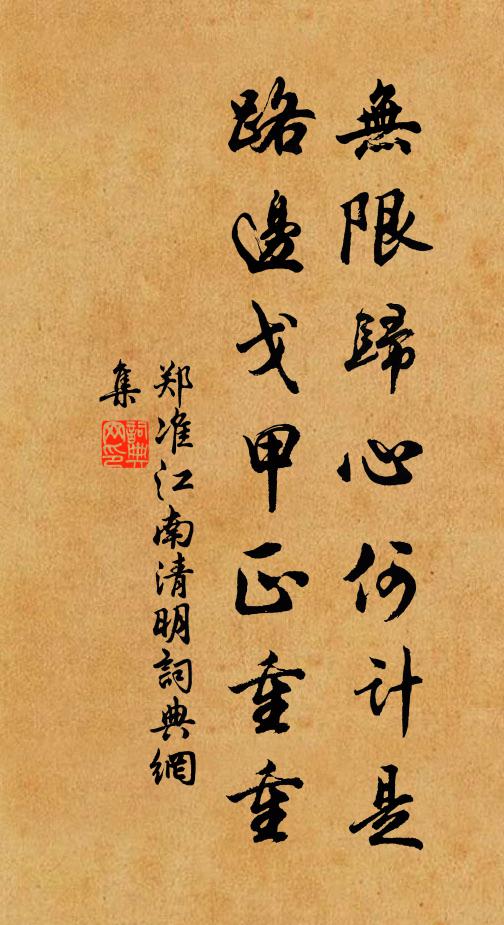 無限歸心何計是
路邊戈甲正重重
郑准江南清明詞典網
集
詞典
网印